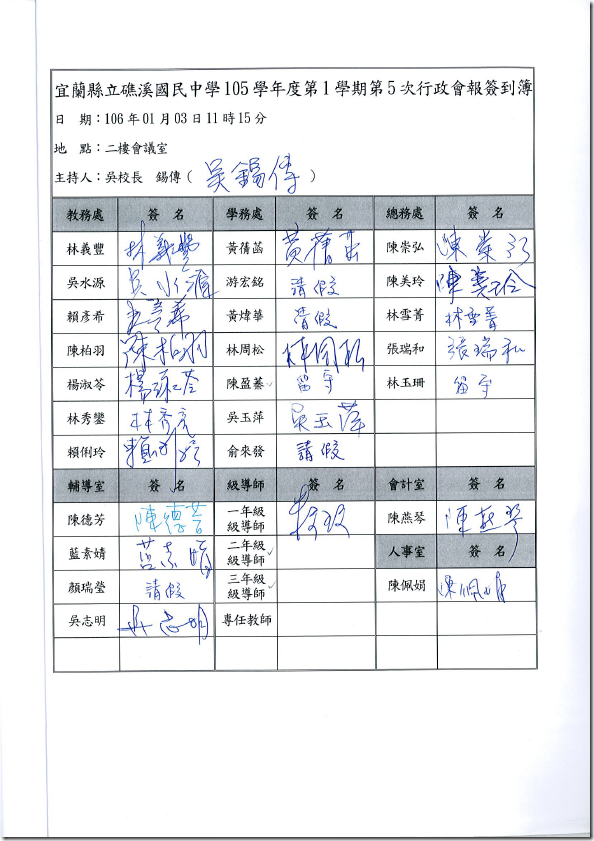 宜蘭縣立礁溪國民中學105學年度第1學期第5次行政會報簽到簿
日 期：106年01月03日11時15分
地 點：二樓會議室
主持人：吳校長 錫傳（ 吳錫傳 ）
教務處 簽 名 學務處 簽 名 總務處 簽 名
林義豐 林義豐 黃蒨菡 黃蒨菡 陳崇弘 陳崇弘
吳水源 吳水源 游宏銘 請假 陳美玲 陳美玲
賴彥希 黃煒華 請假 林雪菁 林雪菁
陳柏羽 陳柏羽 林周松 林周松 張瑞和 張瑞和
楊淑苓 楊淑苓 陳盈蓁 留守 林玉珊 留守
林秀鑾 林秀 吳玉萍 吳玉萍
賴俐玲 賴 俞來發 請假
輔導室 簽 名 級導師 簽 名 會計室 簽 名
陳德芳 陳德芳 一年級級導師 陳燕琴 陳燕琴
藍素婧 藍素婧 二年級級導師 人事室 簽 名
顏瑞瑩 請假 三年級級導師 陳佩娟 陳佩娟
吳志明 吳志明 專任教師